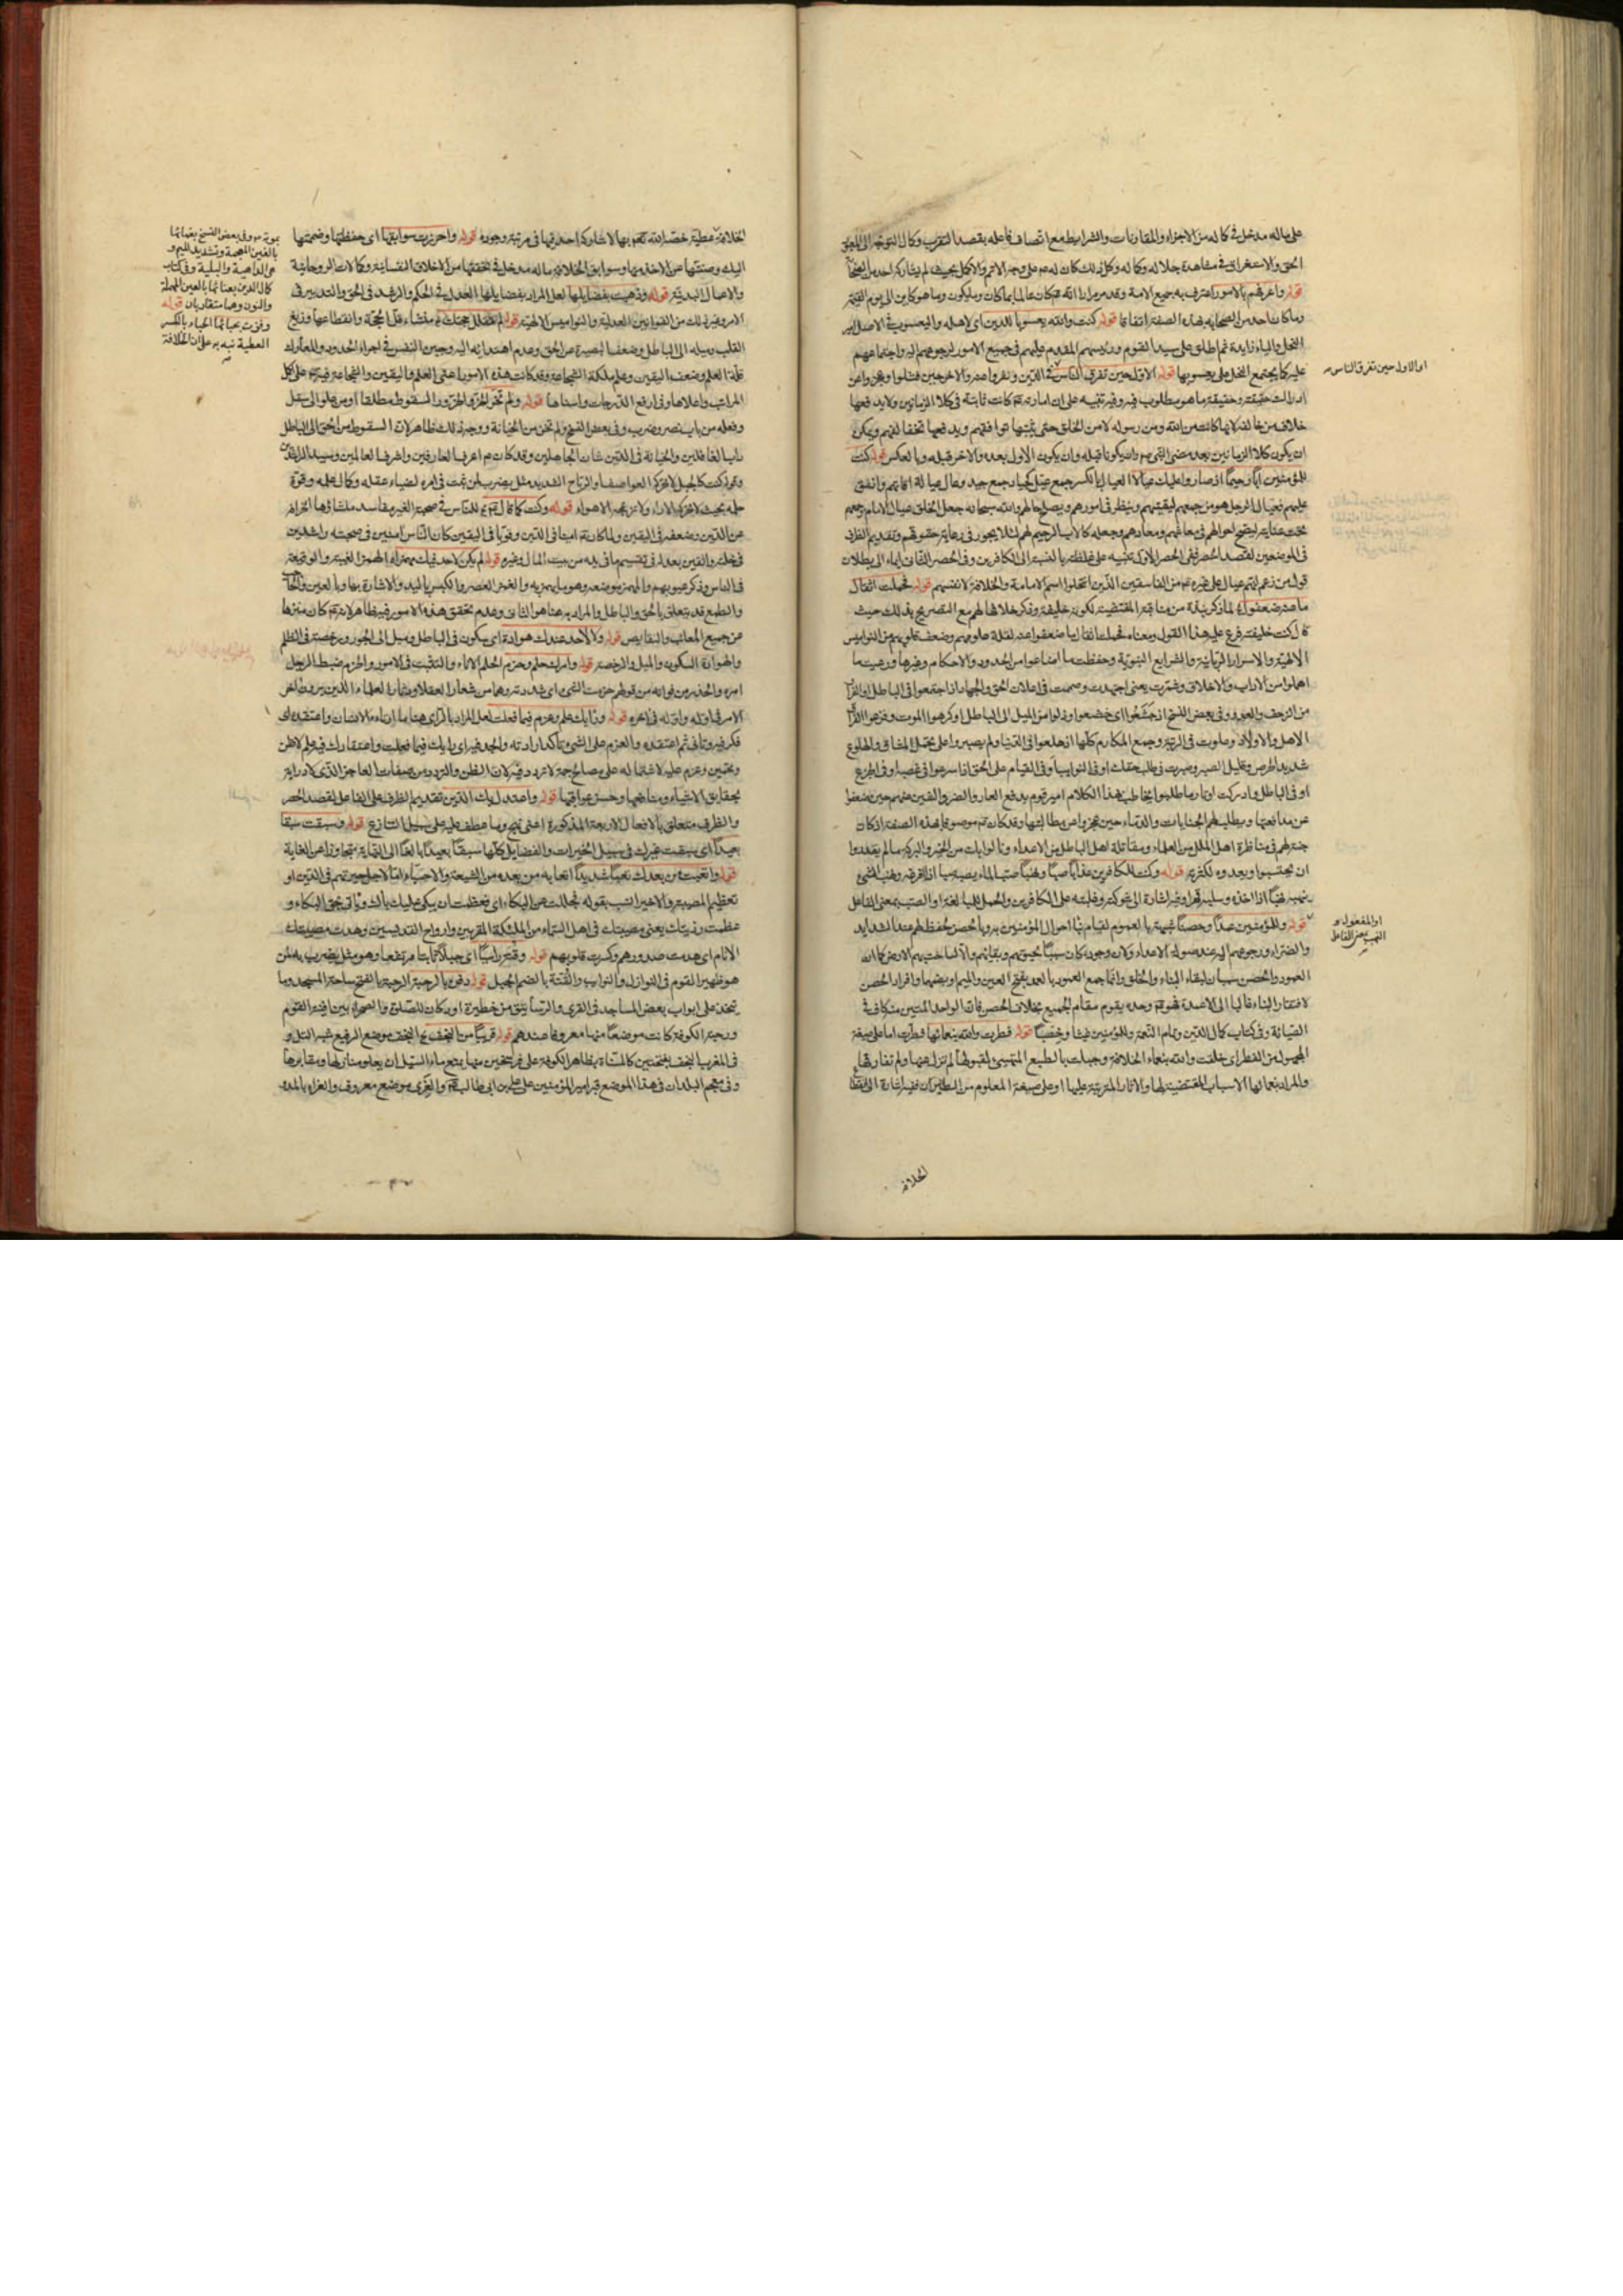 على ماله مدخل في كماله من الاجزاء والمقارنات والشرايط مع اتصاف فاعله بقصد التقرب وكمال التوجه الى
الحق والاستغراق في مشاهدة جلاله وكماله وكل ذلك كان له م على وجه الاتم والاكمل بحيث لم يشاركه احد من الصحابة
قوله واعرفهم بالامور اعترف به جميع الامة وقد مر مرارا انه كان عالما بما كان وما يكون وما هو كاين الى يوم القيمة
وما كان احد من الصحابه بهذه الصفة اتفاقا قوله كنت والله يعسوبا للدين اى لاهله واليعسوب في الاصل امير
النحل والياء زايدة ثم اطلق على سيد القوم ورئيسهم المقدم عليهم في جميع الامور لرجوعهم اليه واجتماعهم
عليه كما يجتمع النحل على يعسوبها قوله الاول حين تفرق الناس في الدين ونفروا عنه والاخر حين فشلوا وعجزوا عن
او الاول حين تفرق الناس
ادراك حقيقته وحقيقة ما هو مطلوب فيه وفيه تنبيه على ان امارته كانت ثابتة في كلا الزمانين ولا يدفعها
خلاف من خالفه لانها كانت من الله ومن رسوله لا من الخلق حتى يثبتها توافقهم ويدفعها تخالفهم ويمكن
ان يكون كلا الزمانين بعد مضى النبي ص وان يكونا قبله وان يكون الاول بعده والاخر قبله وبالعكس قوله كنت
للمؤمنين ابا رحيما اذ صاروا عليك عيالا العيال بالكسر جمع عيل كجياد جمع جيد
عليهم فعيال الرجل هو من جمعهم ليقيتهم وينظر في امورهم ويصلح حالهم والله سبحانه جعل الخلق عيال الامام وجمعهم
تحت عنايته ليصلح احوالهم في معاشهم ومعادهم وجعله كالاب الرحيم لهم لئلا يجور في رعاية حقوقهم وتقديم الظرف
في الموضعين لقصد الحصر ففى الحصر الاول تنبيه على غلظته بالنسبة الى الكافرين وفى الحصر الثانى ايماء الى بطلان
قول من زعم انهم عيال على غيره من الفاسقين الذين انتحلوا اسم الامامة والخلافة لانفسهم قوله فحملت اثقال
ما عنه ضعفوا لما ذكر نبذة من مناقبه المقتضية لكونه خليفة وذكر خلافا لهم مع التصريح بذلك حيث
قال كنت خليفته فرع عليه هذا القول ومعناه فحملت اثقال ما ضعفوا عنه لقلة علومهم وضعف قلوبهم من النواميس
الالهية والاسرار الربانية والشرايع النبوية وحفظت ما اضاعوا من الحدود والاحكام وغيرها ورعيت ما
اهملوا من الاداب والاخلاق وشمرت يعنى اجتهدت وصممت في اعلان الحق والجهاد اذ اجتمعوا في الباطل
الاهل والاولاد وعلوت في الرتبة وجمع المكارم كلها اذ هلعوا في الدنيا ولم يصبروا على تحمل المشاق والهلوع
شديد الحرص وقليل الصبر وصبرت في طلب حقك او في النوايب او في القيام على الحق اذا سرعوا في غصبه او في الجزع
او في الباطل وادركت اوتار ما طلبوا يخاطب بهذا الكلام امير قوم يدفع العار والضر والضيم عنهم حين ضعفوا
عن مدافعتها ويطلب لهم الجنايات والدماء حين عجزوا عن مطالبتها وقد كان موصوفا بهذه الصفة اذ كان
جنة لهم في مناظرة اهل الملل من العلماء ومقاتلة اهل الباطل من الاعداء ونالوا بك من الخير والبركة ما لم يقدروا
ان يحتسبوا ويعدوه لكثرته قوله وكنت للكافرين عذابا صبا ونهبا صب الماء يصبه صبا اذا افرغه ونهب الشئ
ينهبه نهبا اذا اخذه وسلبه قهرا وفيه اشارة الى شوكته وغلبته على الكافرين والحمل للمبالغة او الصب بمعنى الفاعل
قوله وللمؤمنين عمدا وحصنا شبهه بالعمود لقيام نظام احوال المؤمنين به وبالحصن لحفظهم عند الشدايد
او المفعول و
النهب بمعنى الفاعل
والضراء ورجوعهم اليه عند صولة الاعداء ولان وجوده كان سببا لحيوتهم وبقائهم والا لساخت بهم الارض كما ان
العمود والحصن سببان لبقاء البناء والخلق وانما جمع العمود بالعمد بفتح العين والميم او بضمهما وافراد الحصن
لافتقار البناء غالبا الى الاعمدة فهو وحده يقوم مقام الجميع بخلاف الحصن فان الواحد المتين منه كاف في
الصيانة وفى كتاب كمال الدين وتمام النعمة وللمؤمنين غيثا وخصبا قوله فطرت والله بنعمائها فطرت اما على صيغة
المجهول من الفطر اى خلقت والله بنعماء الخلافة وجبلت بالطبع المتهيئ لقبولها لم تزل عنها ولم تفارقها
والمراد بنعمائها الاسباب المقتضية لها والاثار المترتبة عليها او على صيغة المعلوم من الطيران ففيه اشارة الى
الخلافة
الخلافة عطية خصه الله تعالى بها لا يشاركه احد فيها في مرتبة وجوده قوله واحرزت سوابقها اى حفظتها وضممتها
اليك وصنتها عن الاخذ منها وسوابق الخلافة ما له مدخل في تحققها من الاخلاق النفسانية وكمالات الروحانية
والاعمال البدنية قوله وذهبت بفضايلها لعل المراد بفضايلها العدل في الحكم والرشد في الحق والتدبير في
الامر وغير ذلك من القوانين العدلية والنواميس الالهية قوله لم تفلل حجتك منشاء فل الحجة وانقطاعها وزيغ
القلب وميله الى الباطل وضعف البصيرة عن الحق وعدم اهتدائه اليه وجبن النفس في اجراء الحدود والمعارك
قلة العلم وضعف اليقين وعدم ملكة الشجاعة وقد كانت هذه الامور اعنى العلم واليقين والشجاعة فيه على كل
المراتب واعلاها وفى ارفع الدرجات واسناها قوله ولم تخر الخر والخرور السقوط مطلقا او من علو الى سفل
وفعله من باب نصر وضرب وفى بعض النسخ ولم تخن من الخيانة ووجه ذلك ظاهر لان السقوط من الحق الى الباطل
داب الغافلين والخيانة في الدين شان الجاهلين وقد كان م اعرف العارفين واشرف العالمين وسيد الزاهدين
قوله كنت كالجبل لا تحركه العواصف الرياح الشديد مثل يضرب لمن ثبت في امره لضياء عقله وكمال علمه وقوة
حلمه بحيث لا تحركه الاراء ولا تزعجه الاهواء قوله وكنت كما قال امن للناس في صحبة الغير مفاسد منشاؤها الخراف
عن الدين وضعفه في اليقين ولما كان امينا في الدين وقويا في اليقين كان الناس امنين في صحبته
قوله لم يكن لاحد فيك مهمز الهمز الغيبة والوقيعة
في الناس وذكر عيوبهم
والطمع قد يتعلق بالحق والباطل والمراد به هنا هو الثانى وعدم تحقق هذه الامور فيه ظاهر لانه كان منزها
عن جميع المعائب والنقايص قوله ولا لاحد عندك هوادة اى سكون في الباطل وميل الى الجور ورخصة في الظلم
والهوادة السكون والميل والرخصة قوله وامرك حلم وحزم الحلم الاناة والتثبت في الامور والحزم ضبط الرجل
امره والحذر من فواته من قولهم حزمت الشئ اى شددته وهما من شعار العقلاء ودثار العلماء الذين يرون اخر
الامر في اوله واوله في اخره قوله ورايك علم وعزم فيما فعلت لعل المراد بالراى هنا ما اراده الانسان واعتقده اى
فكر فيه وتانى ثم اعتقده والعزم على الشئ تاكد ارادته والجد فيه اى رايك فيما فعلت واعتقادك فيه علم لا ظن
وتخمين وعزم عليه لاشتماله على مصالح جمة لا تردد فيه لان الظن والتردد من صفات العاجز الذى لا دراية
بحقايق الاشياء ومنافعها وحسن عواقبها قوله واعتدل بك الدين تقديم الظرف على الفاعل لقصد الحصر
والظرف متعلق بالافعال الاربعة المذكورة اعنى نهج وما عطف عليه على سبيل التنازع قوله وسبقت سبقا
بعيدا اى سبقت غيرك في سبيل الخيرات والفضايل كلها سبقا بعيدا بالغا الى النهاية متجاوزا عن الغاية
قوله واتعبت من بعدك تعبا شديدا اتعابه من بعده من الشيعة والاحباء اما لاجل حيرتهم في الدين او
تعظيم المصيبة والاخير انسب بقوله فجللت عن البكاء اى فعظمت ان يبكى عليك بالشروياتى بحق البكاء و
عظمت رزيتك يعنى مصيبتك في اهل السماء من الملئكة المقربين وارواح القديسين وهدت مصيبتك
الانام اى هدت صدورهم وكسرت قلوبهم قوله وقنة راسيا اى جبلا ثابتا مرتفعا وهو مثل يضرب به لمن
هو ظهير القوم في النوازل والنوايب والقنة بالضم الجبل قوله دفن بالرحبة الرحبة بالفتح ساحة المسجد وما
يتخذ على ابواب بعض المساجد في القرى والرساتيق من حظيرة او دكان للصلوة والصحراء بين افنية القوم
ورحبة الكوفة كانت موضعا منها معروفا عندهم قوله قريبا من النجف النجف موضع الرفيع شبه التل و
في المغرب النجف بفتحتين كالمسناة بظاهر الكوفة على فرسخين منها يمنع ماء السيل ان يعلو منازلها ومقابرها
وفى معجم البلدان في هذا الموضع قبر امير المؤمنين على بن ابى طالب والغرى موضع معروف والغراء بالمد
وفى بعض النسخ بغمائها
بالغين المعجمة وتشديد الميم و
هى الداهية والبلية وفى كتاب
كمال الدين بعنائها بالعين المهملة
والنون وهما متقاربان قوله
وفزت بحبائها الحباء بالكسر
العطية نبه به على ان الخلافة